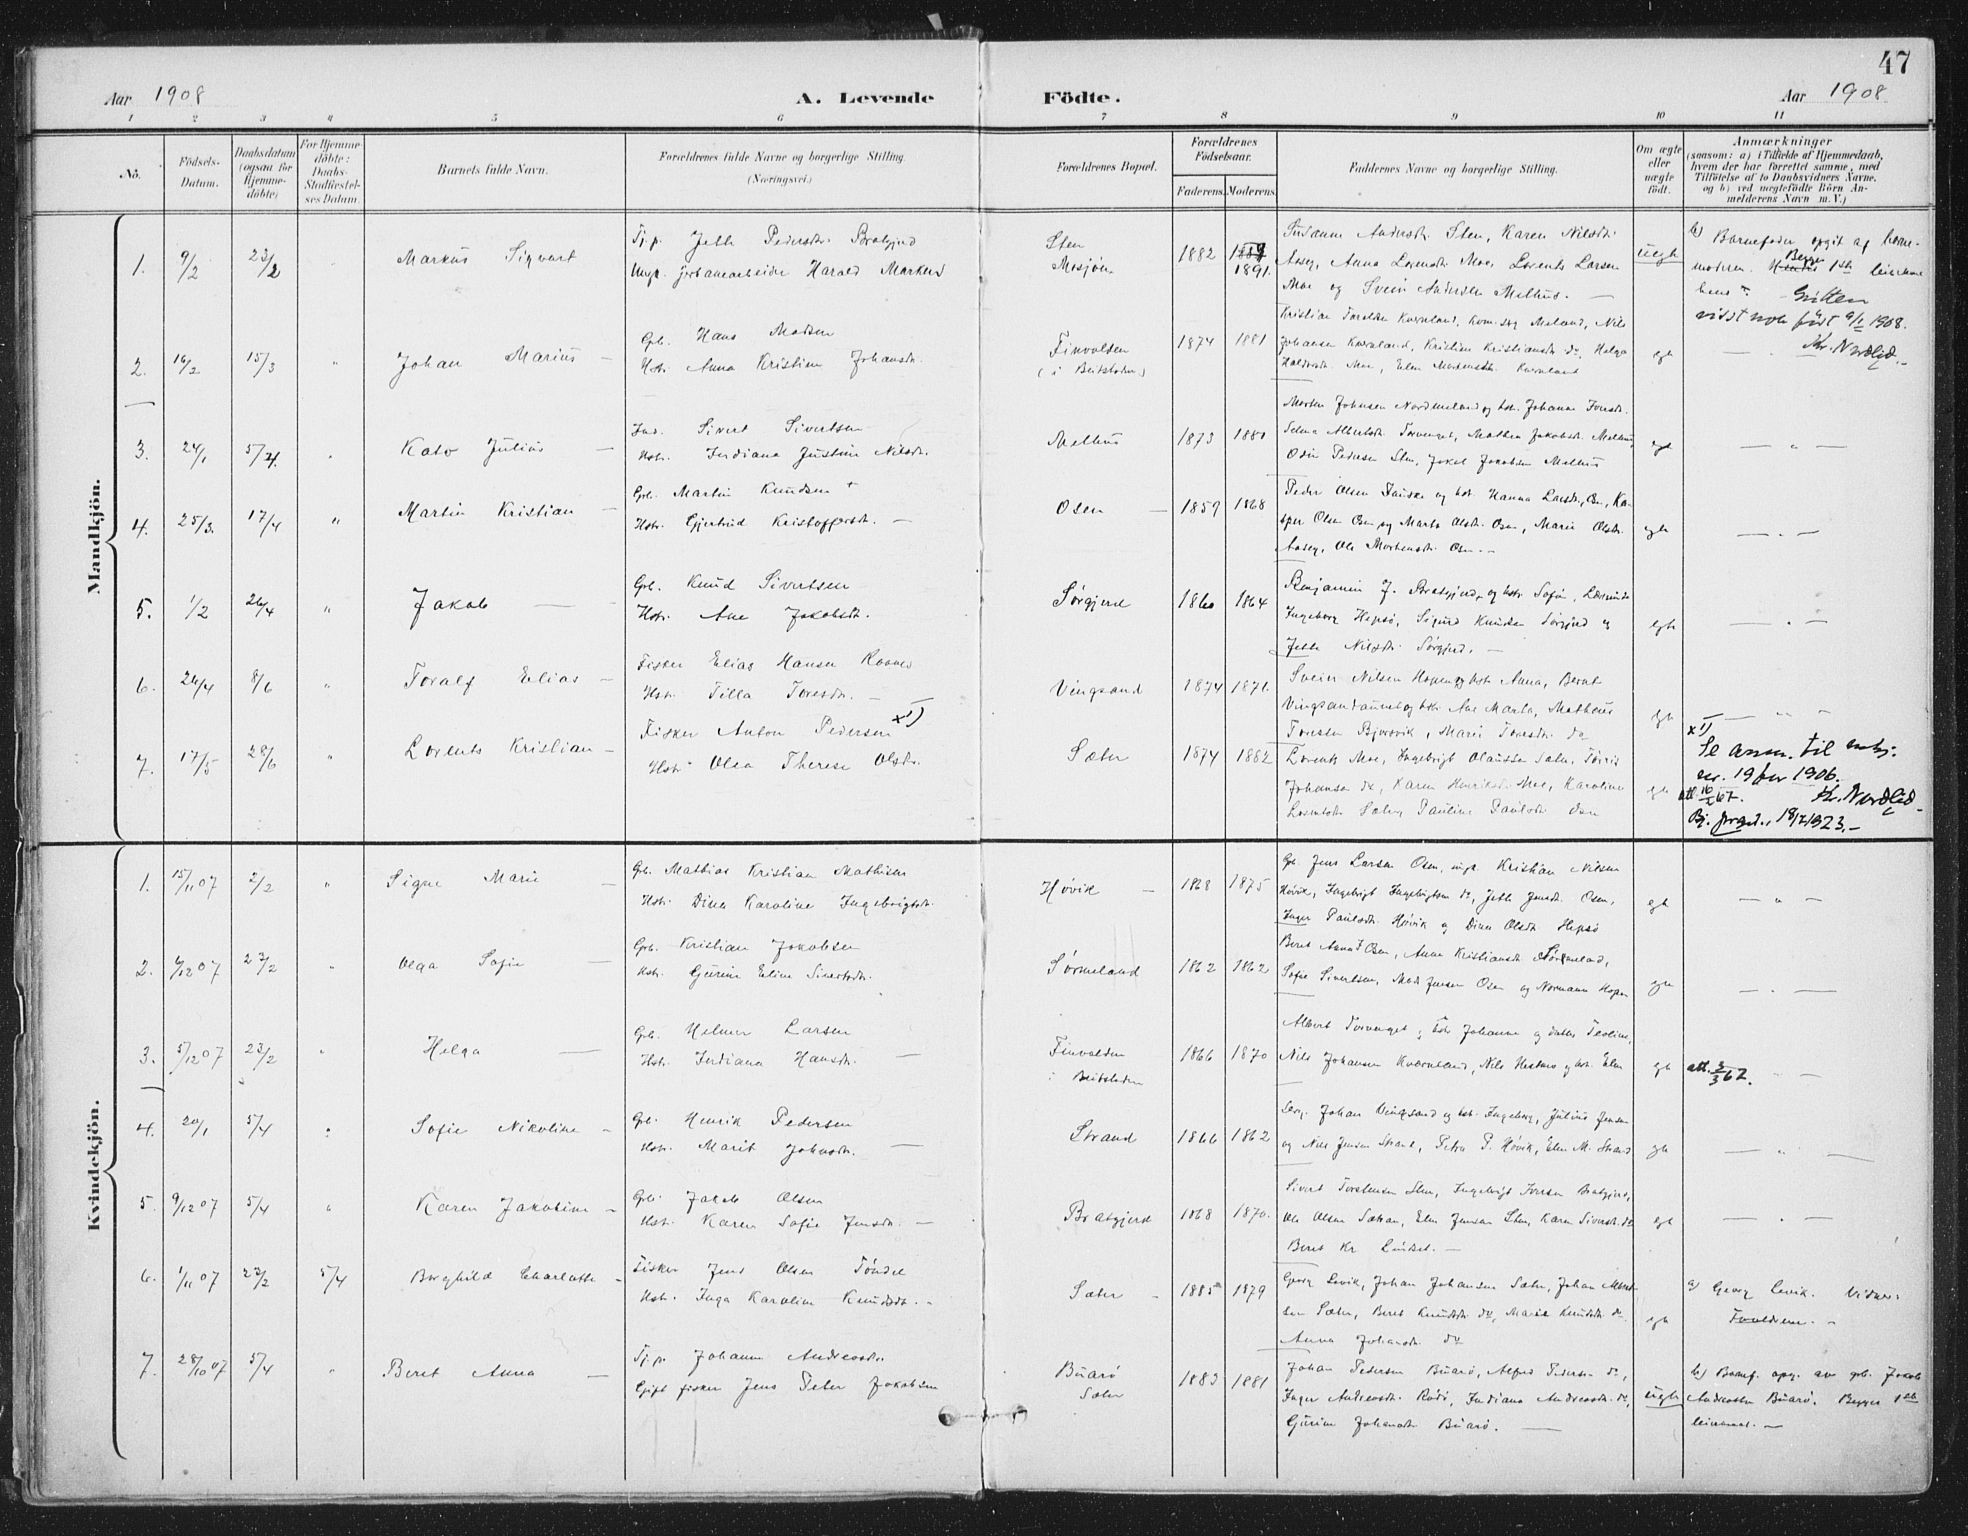 47
Aar 1908 A. Levende Födte. Aar 1908
1 2 3 4 5 6 7 8 9 10 11
No.
Födsels-
Datum.
Daabsdatum
(ogsaa for
Hjemme-
döbte)
For Hjemme-
döbte:
Daabs-
Stadfæstel-
ses Datum.
Barnets fulde Navn.
Forældrenes fulde Navne og borgerlige Stilling.
(Næringsvei.)
Forældrenes Bopæl.
Forældrenes
Födselsaar.
Faderens. Moderens.
Faddernes Navne og borgerlige Stilling.
Om ægte
eller
uægte
födt.
Anmærkninger
(saasom: a) i Tilfælde af Hjemmedaab,
hvem der har forrettet samme, med
Tilföielse af to Daabsvidners Navne,
og b) ved uægtefödte Börn An-
melderens Navn m. V.)
Mandkjön.
1. 9/2 23/2 " Markus Sigvart
Tj. p. Jette Pedersdtr. Bratgjerd
Ungk. jernbanearbeider Harald Markus
Sten
Mosjøen
1882 1891.
Susanne Andersdtr. Sten, Karen Nilsdtr.
Aaseg, Anna Lorentsdtr. Moe, Lorents Larsen
Moe og Svein Andersen Melhus. —
uegte
b) Barnefader opgit af barne-
moderen. Begge 1ste leiermaal
Gutten
visst nok født 9/1 1908.
Kr. Nordlid.
2. 16/2 15/3 " Johan Marius —
Gbr. Hans Madsen
Hstr. Anna Kristine Johansdtr.
Finvolden
(i Beitstaden)
1874 1881
Johansen Kværnland, Kristine Kristiansdtr. do, Helga
Haldorsdtr. Moe, Elen Mortensdtr. Kværnland
egte
3. 24/1 5/4. " Kato Julius —
Ind. Sivert Sivertsen
Hstr. Indiana Justine Nilsdtr.
Melhus
1873 1880
Morten Johnsen Nordmeland og hstr. Johanna Iversdtr.
Selma Albertsdtr. Torvenget, Mathea Jakobsdtr. Melhus,
Odin Pedersen Sten, Jakob Jakobsen Melhus
egte — " —
4. 25/3. 17/4 " Martin Kristian —
Gbr. Martin Knudsen +
Hstr. Gjertrud Kristoffersdtr. —
Osen —
1859 1868
Peder Olsen Fauske og hstr. Hanna Larsdtr. Osen, Ka-
sper Olsen Osen og Marta Olsdtr. Osen, Marie Olsdtr.
Aaseg, Ole Mortensdtr. Osen. —
egte — " —
5. 1/2 26/4 " Jakob —
Gbr. Knud Sivertsen
Hstr. Ane Jakobsdtr.
Sørgjerd
1860 1864
Benjamin J. Bratgjerd og hstr. Sofie,
Ingeborg Hepsø, Sigurd Knudsen Sørgjerd og
Jette Nilsdtr. Sørgjerd. —
egte — " —
6. 26/4 8/6 " Toralf Elias —
Fisker Elias Hansen
Hstr. Tilla Toresdtr. —
Vingsand
1874 1871.
Svein Nilsen Hopen og hstr. Anna, Bernt
Vingsandaunet og hstr. Ane Marta, Mathæus
Toresen Bjørsvik, Marie Toresdtr. do
egte — " —
7. 17/5 28/6 " Lorents Kristian —
Fisker Anton Pedersen x1)
Hstr. Olea Therese Olsdtr.
Sæter
1874 1882
Lorents Moe, Ingebrigt Olaussen Sæter, Tørris
Johansen do, Karen Henriksd. Moe, Karoline
Lorentsdtr. Sæter, Pauline Paulsdtr. do
egte
x1)
Se anm. til
nr. 19 for 1906.
att. 16/2 67. Kr. Nordlid
18/7 1923. —
Kvindekjön.
1. 15/11 07 2/2 " Signe Marie —
Gbr. Mathias Kristian Mathisen
Hstr. Dina Karoline Ingebrigtsdtr.
Høvik —
1868 1875
Gbr. Jens Larsen Osen, ungk. Kristian Nilsen
Høvik, Ingebrigt Ingebrigtsen do, Jette Jensdtr. Osen,
Inger Paulsdtr. Høvik og Dina Olsdtr. Hepsø
egte — " —
2. 6/12 07 23/2 " Olga Sofie —
Gbr. Kristian Jakobsen
Hstr. Gurine Eline Sivertsdtr.
Sørmeland
1862 1862
Beret Anna Osen, Anna Kristiansdtr. Sørmeland,
Sofie Sivertsen, Mads Jensen Osen og Normann Hopen
egte — " —
3. 5/12 07 23/2 " Helga —
Gbr. Helmer Larsen
Hstr. Indiana Hansdtr. —
Finvolden
i Beitstaden
1866 1870
Albert Torvenget, hstr. Johanna og datter Teoline,
Nils Johansen Kværnland, Nils og hstr. Elen
egte att. 3/3 67. " —
4. 20/1 5/4 " Sofie Nikoline —
Gbr. Henrik Pedersen
Hstr. Marit Johnsdtr. —
Strand
1866 1862
Johan Vingsand og hstr. Ingeborg, Julius Jensen
og Nils Jensen Strand, Petra P. Høvik, Elen M. Strand
egte — " —
5. 9/12 07 5/4 " Karen Jakobine —
Gbr. Jakob Olsen
Hstr. Karen Sofie Jensdtr. —
Bratgjerd
1868 1870.
Sivert Torstensen Sten, Ingebrigt Iversen Bratgjerd,
Ole Olsen Sætran, Elen Jensen Sten, Karen Sivertsdtr. do
Beret Kr Lindset. —
egte — " —
6. 1/11 07 23/2 5/4 Borghild Charlotte —
Fisker Jens Olsen Tøndel
Hstr. Inga Karoline Knudsdtr. —
Sæter —
1885 1879
Georg Levik, Johan Johansen Sæter, Johan Albert-
sen Sæter, Beret Knudsdtr. do, Marie Knudsdtr. do.
Anna Johansdtr. do
egte
a) Georg Levik. Vidner:
Forældrene. —
7. 28/10 07 5/4 " Beret Anna —
Tj. p. Johanna Andreasdtr.
Gift fisker Jens Peter Jakobsen
Buarø
Sæter
1883 1881
Johan Pedersen Buarø, Alfred Pedersen do,
Inger Andreasdtr. Rødø, Indiana Andreasdtr. do,
Gurine Johansdtr. Buarø. —
uegte
b) Barnef. opg. av gbr. Jakob
Andreassen Buarø. Begges 1ste
leiermaal. —